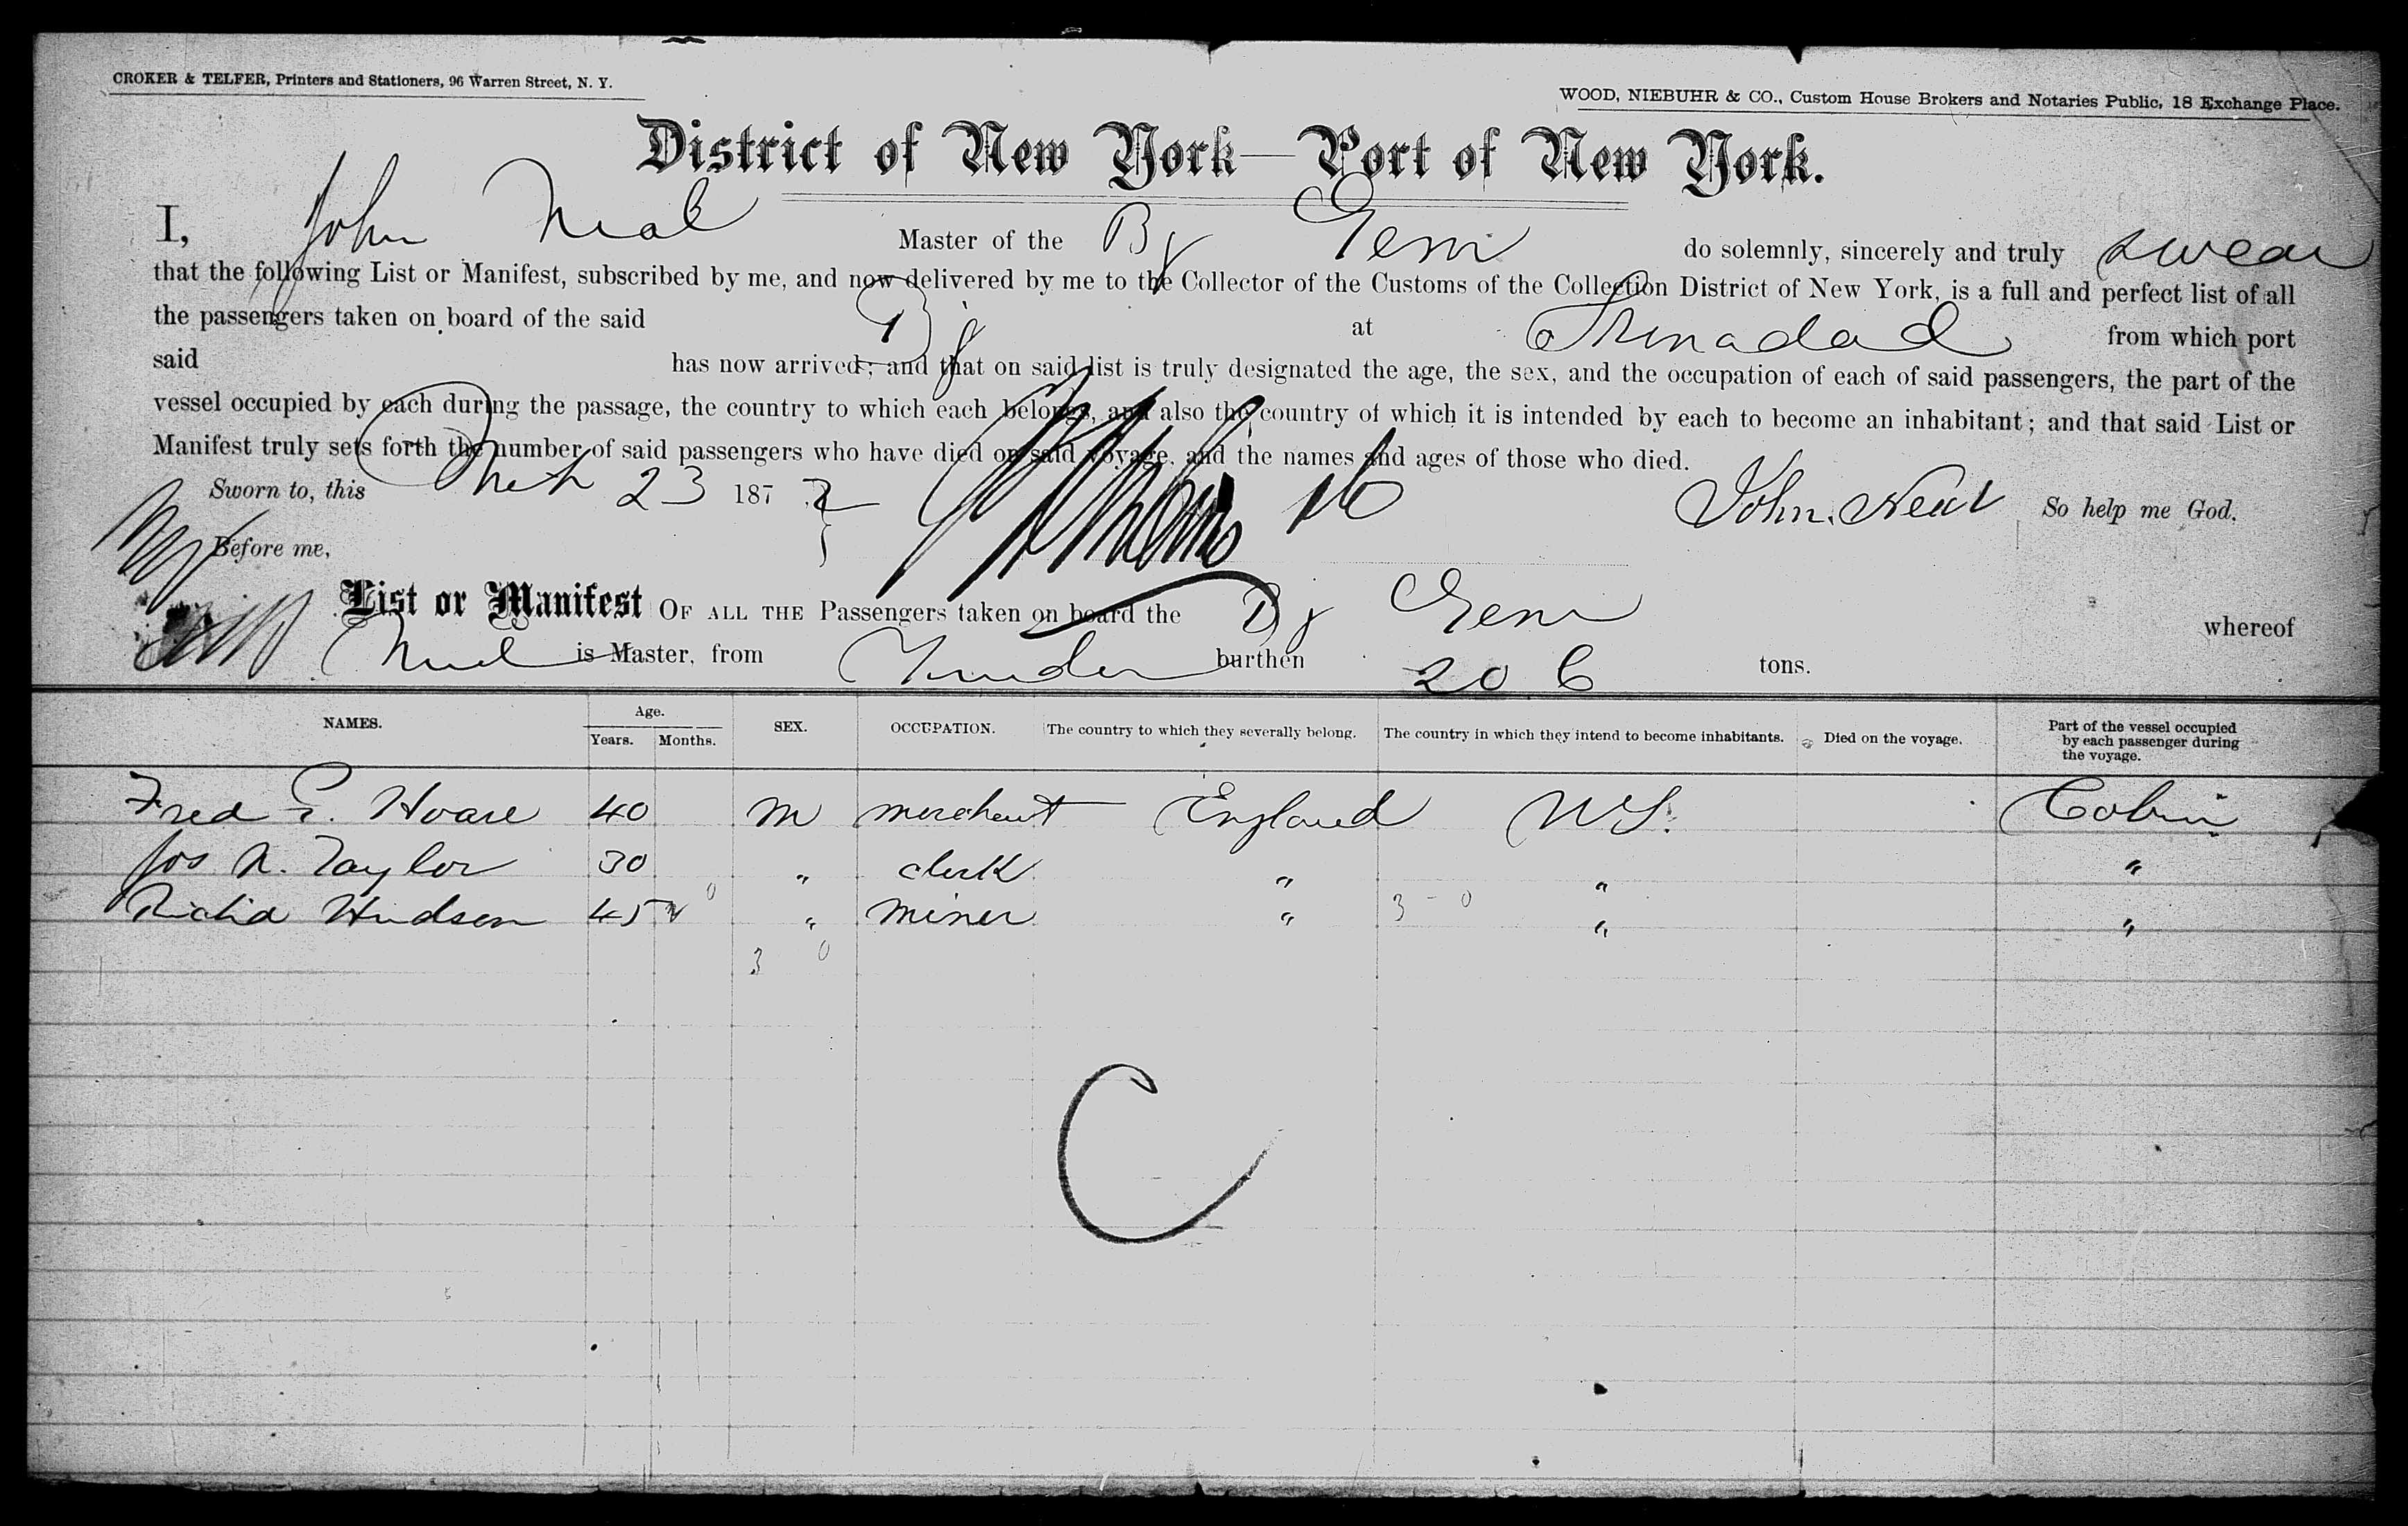 CROKER & TELFER, Printers and Stationers, 96 Warren Street, N. Y.
WOOD, NIEBUHR & CO., Custom House Brokers and Notaries Public, 18 Exchange Place.
District of New York—Port of New York.
I, John Neal Master of the Bg do solemnly, sincerely and truly swear
that the following List or Manifest, subscribed by me, and now delivered by me to the Collector of the Customs of the Collection District of New York, is a full and perfect list of all
the passengers taken on board of the said Bg at Trinadad from which port
said has now arrived; and that on said list is truly designated the age, the sex, and the occupation of each of said passengers, the part of the
vessel occupied by each during the passage, the country to which each belongs, and also the country of which it is intended by each to become an inhabitant; and that said List or
Manifest truly sets forth the number of said passengers who have died on said voyage, and the names and ages of those who died.
Sworn to, this Mch 23 1872 John Neal So help me God.
Before me,
List or Manifest OF ALL THE Passengers taken on board the Bg whereof
is Master, from burthen 206 tons.
NAMES. Age. SEX. OCCUPATION. The country to which they severally belong. The country in which they intend to become inhabitants. Died on the voyage. Part of the vessel occupied by each passenger during the voyage.
Years. Months.
Fred E. Hoare 40 M merchant England Cabin
Jos N. Taylor 30 " clerk " " "
Richd Hudson 45 " miner " 3 - 0 " "
3 0
C